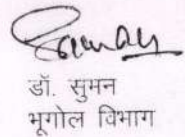 डॉ. सुमन
भूगोल विभाग